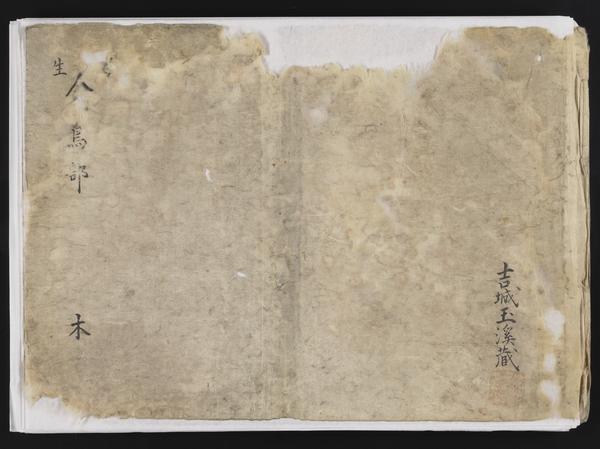 吉城玉溪蔵
生
人鳥部
木